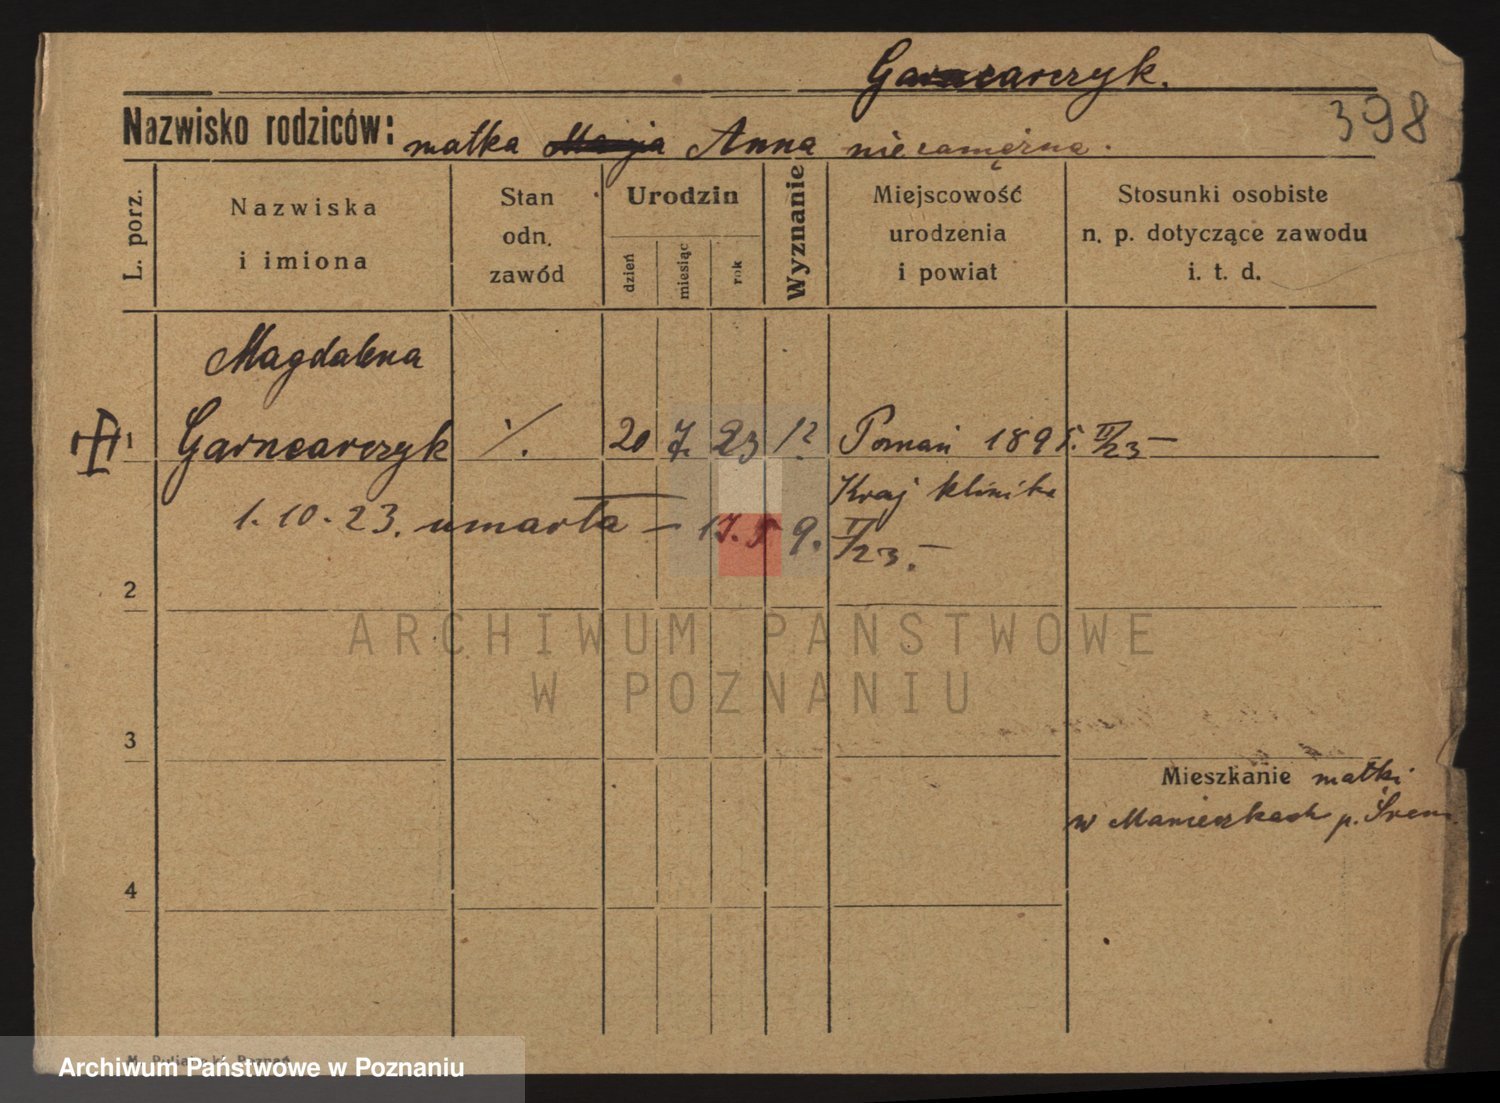 Garncarczyk.
Nazwisko rodziców: matka Maryja Anna niezamężna.
398
L. porz.
Nazwiska
i imiona
Stan
odn.
zawód
Urodzin
dzień
miesiąc
rok
Wyznanie
Miejscowość
urodzenia
i powiat
Stosunki osobiste
n. p. dotyczące zawodu
i. t. d.
Magdalena
1 Garncarczyk ./. 20 7. 23 Poznań 1895. II/23 –
Kraj klinika
1. 10. 23. umarła – 17. 5 9. II/23. –
2
ARCHIWUM PAŃSTWOWE
W POZNANIU
3
Mieszkanie matki
w Manieczkach p. Śrem.
4
Archiwum Państwowe w Poznaniu